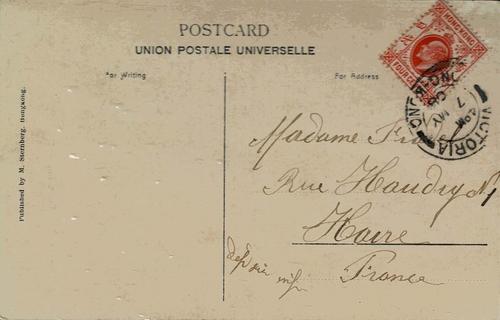 POSTCARD
UNION POSTALE UNIVERSELLE
For Writing
For Address
Published by M. Sternberg, Hongkong.
HONG KONG
FOUR CENTS
VICTORIA
HONG-KONG
4 PM
7 MY
Madame
Rue Haudry
Havre
France